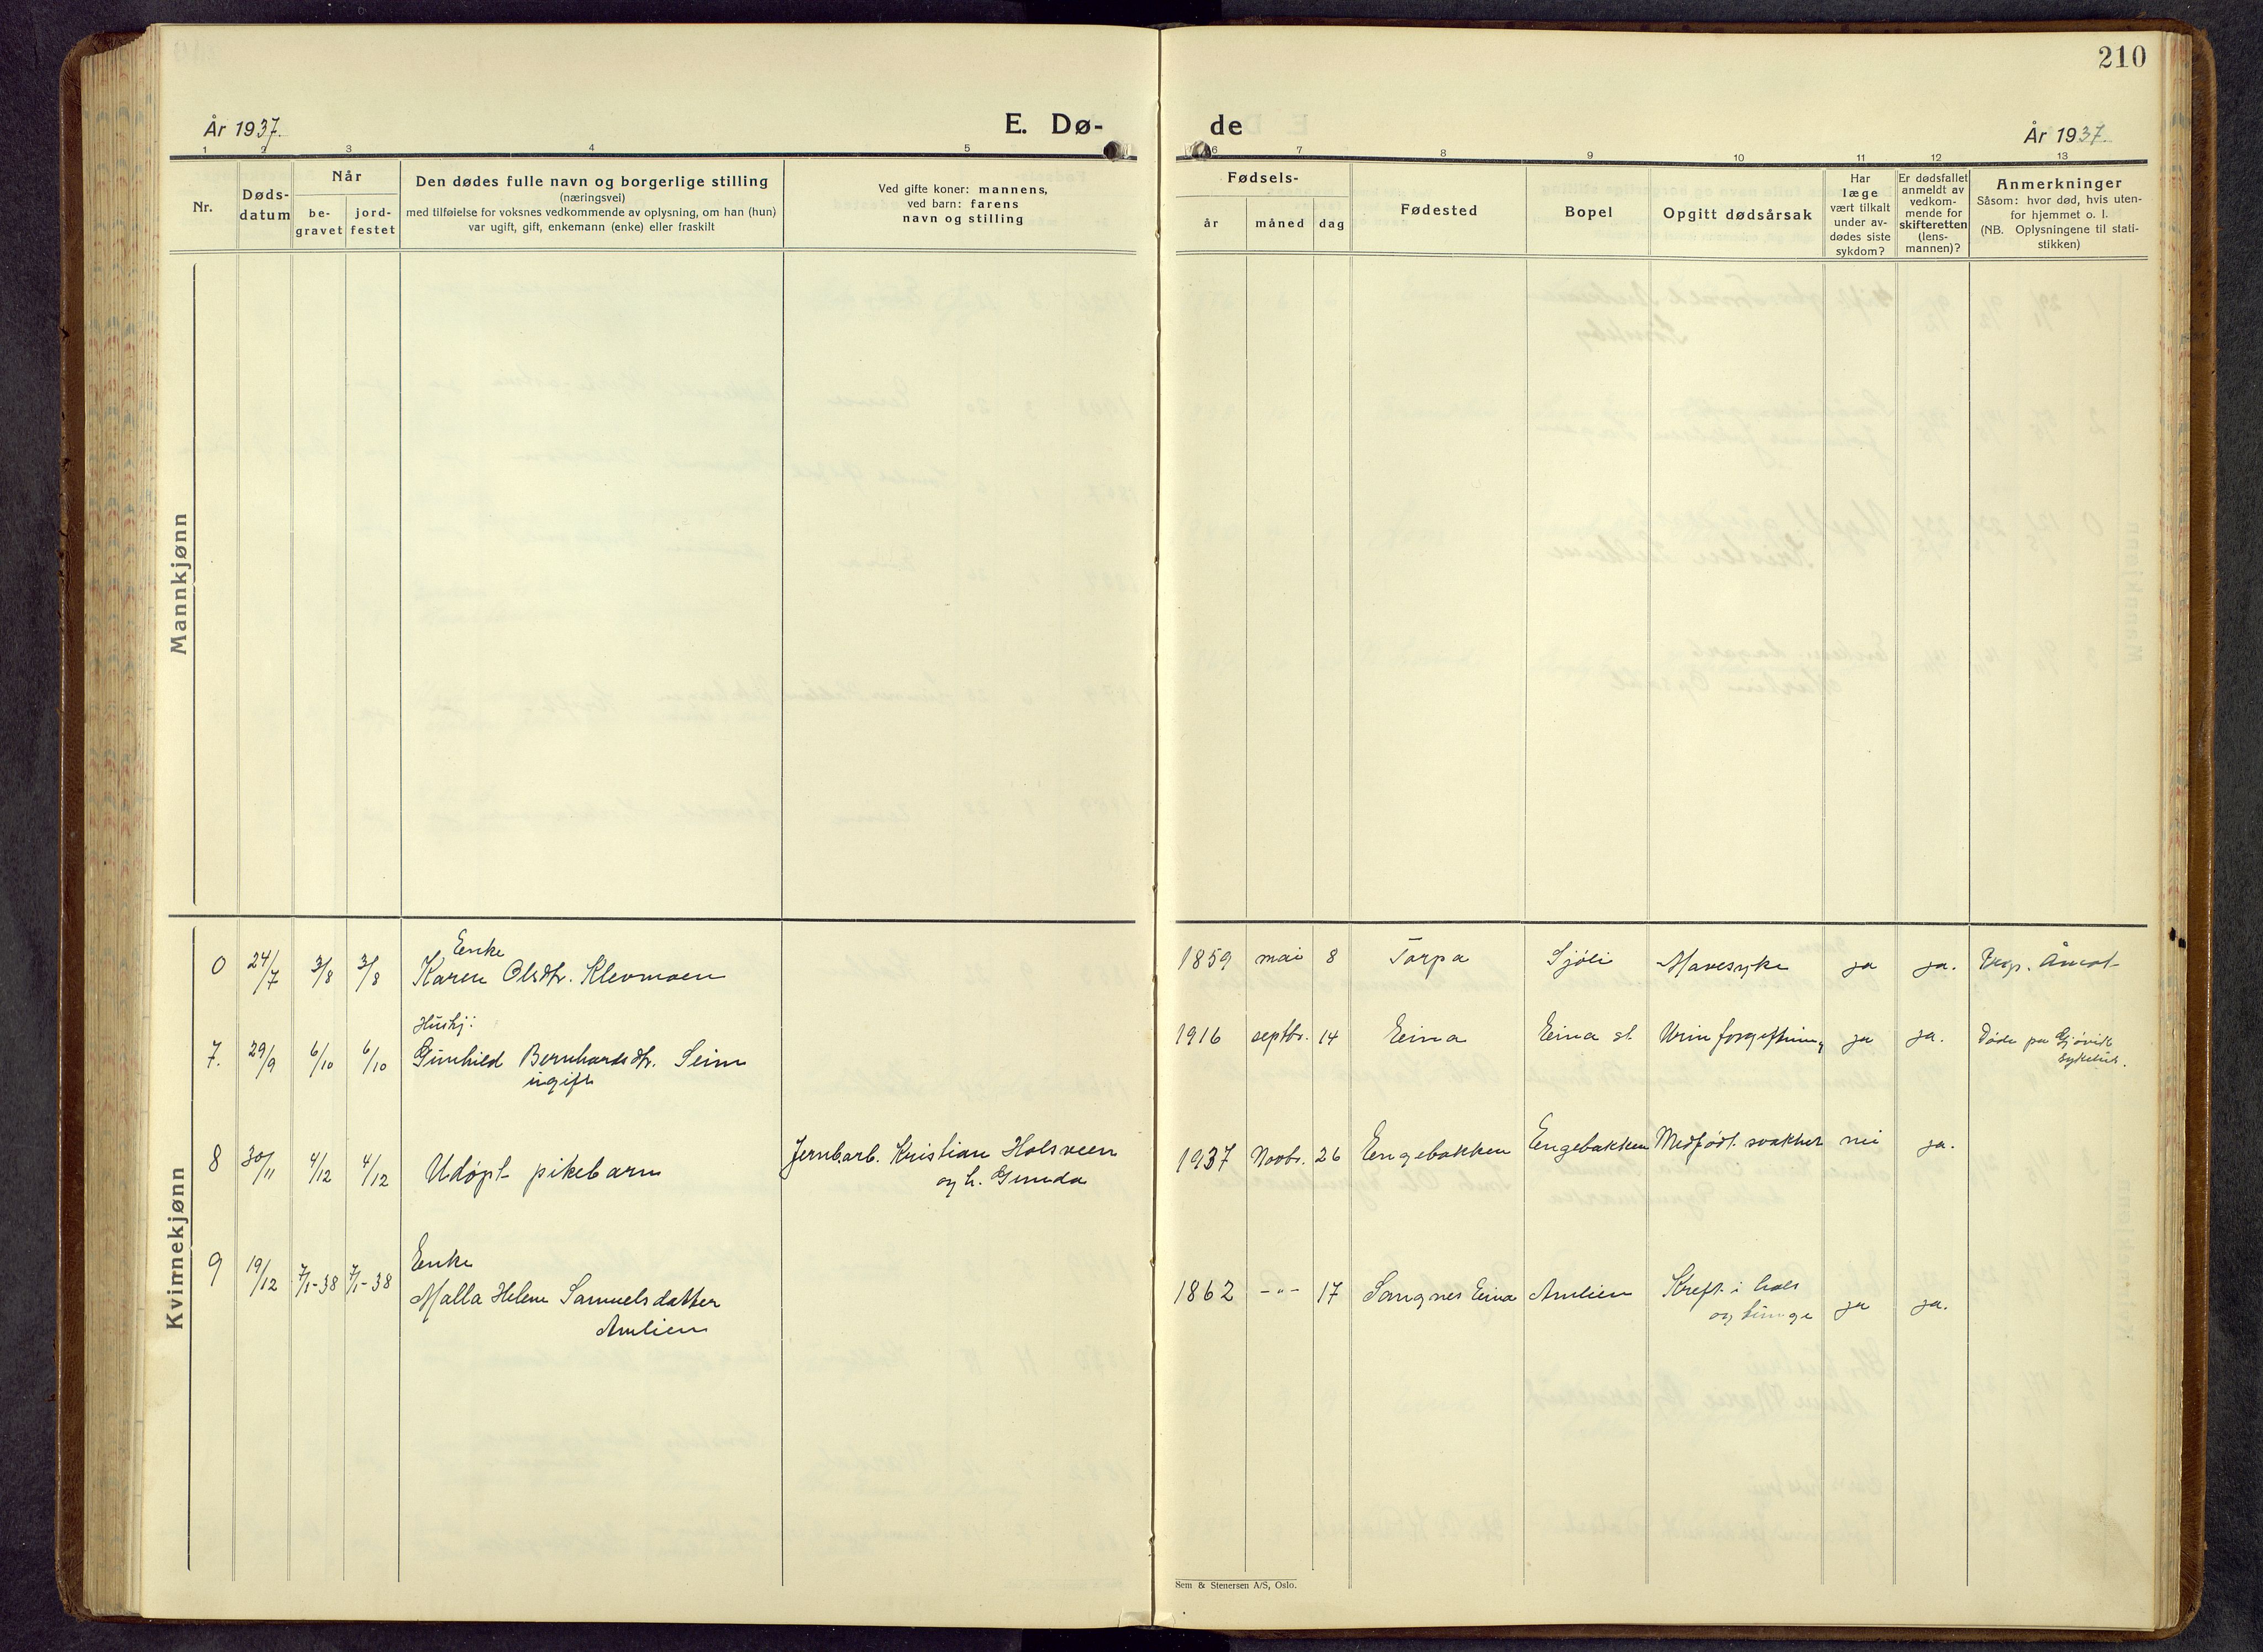 210
År 1937.
E. Dø-
de
År 1937.
1 2 3 4 5
6 7 8 9 10 11 12 13
Nr.
Døds-
datum
Når
be-
gravet
jord-
festet
Den dødes fulle navn og borgerlige stilling
(næringsvei)
med tilføielse for voksnes vedkommende av oplysning, om han (hun)
var ugift, gift, enkemann (enke) eller fraskilt
Ved gifte koner: mannens,
ved barn: farens
navn og stilling
Fødsels-
år måned dag
Fødested
Bopel
Opgitt dødsårsak
Har
læge
vært tilkalt
under av-
dødes siste
sykdom?
Er dødsfallet
anmeldt av
vedkom-
mende for
skifteretten
(lens-
mannen)?
Anmerkninger
Såsom: hvor død, hvis uten-
for hjemmet o. l.
(NB. Oplysningene til stati-
stikken)
Mannkjønn
Kvinnekjønn
Enke
0 24/7 3/8 3/8 Karen Olsdtr. Klevmoen 1859 mai 8 Torpa Sjöli Mavesyke ja ja.
Hushj:
7. 29/9 6/10 6/10 Gunhild Bernhardsdtr. Seim 1916 septbr. 14 Eina Eina st. Urinforgiftning ja ja. Döde på Gjøvik
ugift sykehus.
8 30/11 4/12 4/12 Udøpt pikebarn Jernb.arb. Kristian Holsveen 1937 Novbr. 26 Engebakken Engebakken Medfødt svakhet nei ja.
og h. Gunda
Enke
9 19/12 7/1-38 7/1-38 Malla Helene Samuelsdatter 1862 -"- 17 Sangnes Eina Amlien Kreft i hals
Amlien og tunge ja ja.
Sem & Stenersen A/S, Oslo.